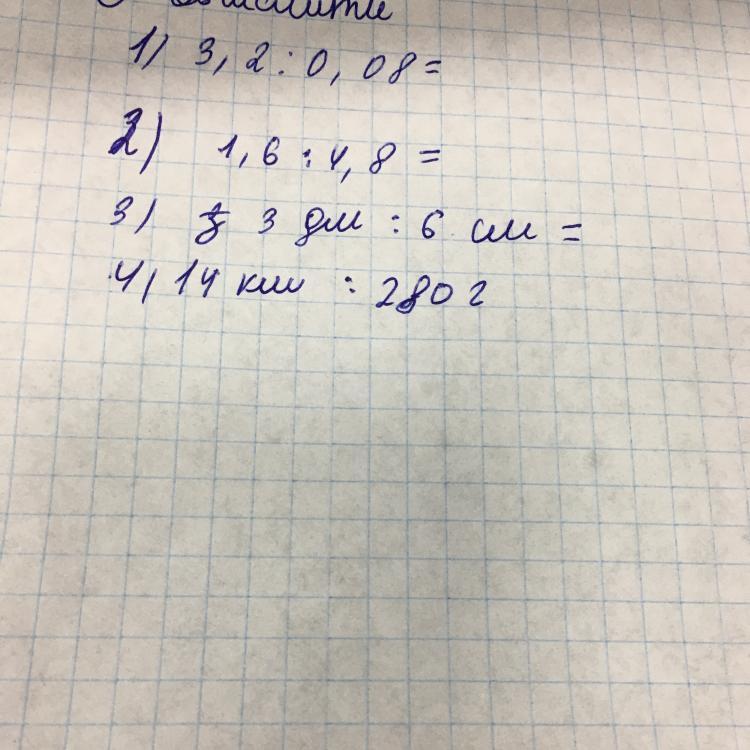 1) 3,2 : 0,08 =
2) 1,6 : 4,8 =
3) 3 дм : 6 см =
4) 14 км : 280 г